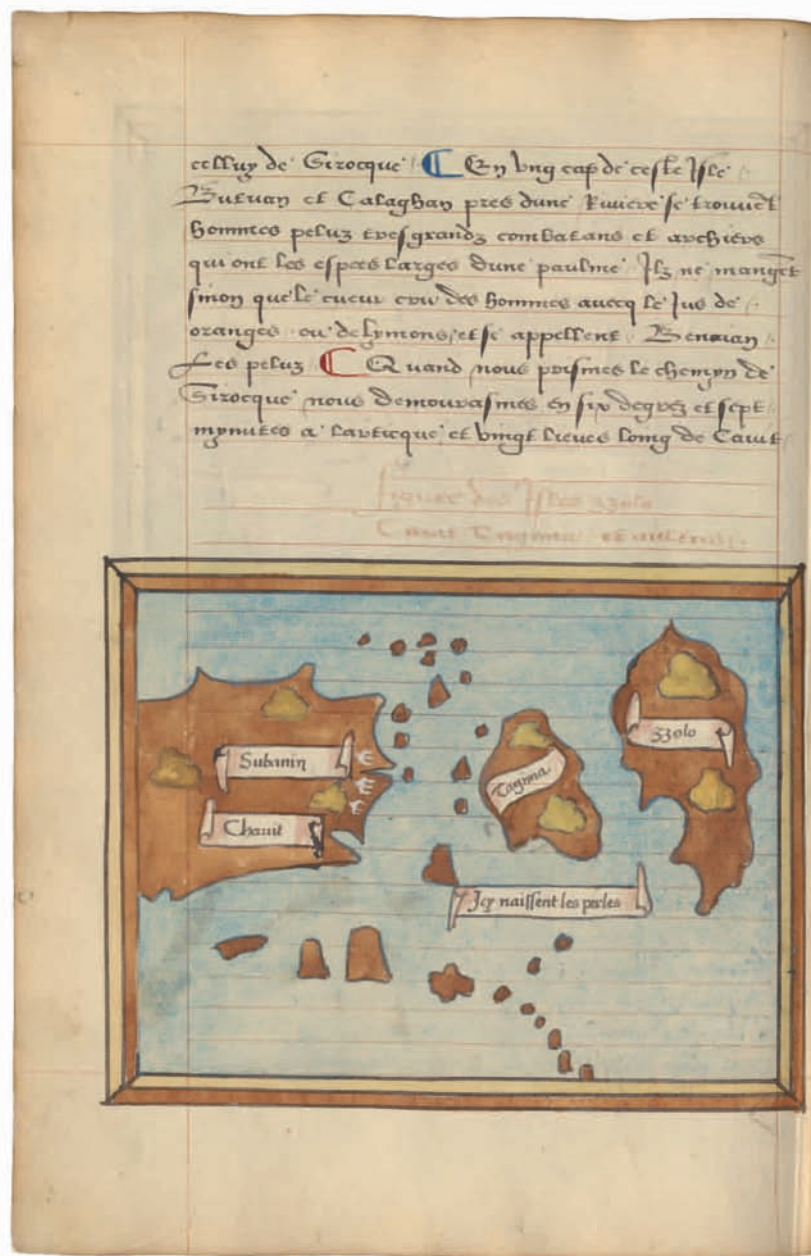 celluy de Sirocque ¶ En ung cap de ceste Isle
Butuan et Calaghan pres dune Riviere se trouuēt
hommes peluz tresgrandz combatans et archiers
qui ont les espees larges dune paulme Ilz ne mangēt
sinon que le cueur cru des hommes auecq le Jus de
oranges ou de lymons, et se appellent Benaian
Les peluz ¶ Quand nous prismes le chemyn de
Sirocque nous demourasmes en six degrez et sept
mynutes a larticque et vingt lieues loing de Cauit
Figure des Isles zzolo
Cauit Tagima et aultres.
zzolo
Subanin
Tagima
Chauit
Icy naissent les perles